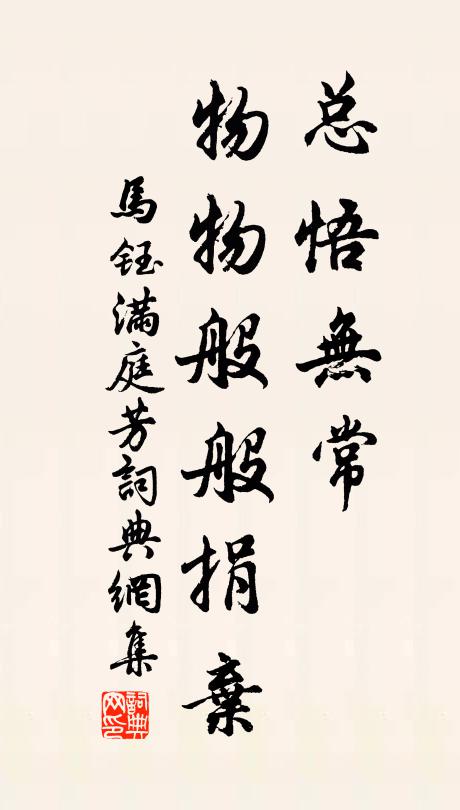 总悟無常
物物般般捐棄
馬鈺滿庭芳詞典網集
詞典网印